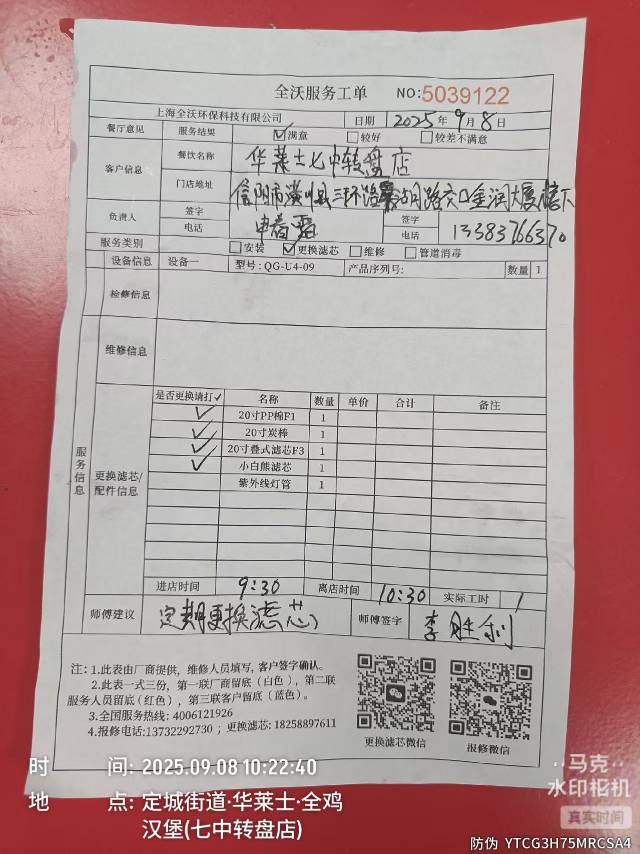 全沃服务工单 NO:5039122
上海全沃环保科技有限公司 日期 2025年9月8日
餐厅意见 服务结果 ☑满意 □较好 □较差不满意
客户信息 餐饮名称 华莱士七中转盘店
门店地址 信阳市潢川县三环路 湖路交口金润大厦楼下
负责人 签字 申春霞 签字
电话 电话 13383766370
服务类别 □安装 ☑更换滤芯 □维修 □管道消毒
服务信息
设备信息 设备一 型号:QG-U4-09 产品序列号: 数量 1
检修信息
维修信息
更换滤芯/配件信息
是否更换请打✓ 名称 数量 单价 合计 备注
✓ 20寸PP棉F1 1
✓ 20寸炭棒 1
✓ 20寸叠式滤芯F3 1
✓ 小白熊滤芯 1
紫外线灯管 1
进店时间 9:30 离店时间 10:30 实际工时 1
师傅建议 定期更换滤芯 师傅签字 李胜利
注：1.此表由厂商提供，维修人员填写，客户签字确认。
2.此表一式三份，第一联厂商留底（白色），第二联
服务人员留底(红色)，第三联客户留底（蓝色）。
3.全国服务热线: 4006121926
4.报修电话:13732292730 ；更换滤芯: 18258897611
更换滤芯微信 报修微信
时 间: 2025.09.08 10:22:40
地 点: 定城街道·华莱士·全鸡
汉堡(七中转盘店)
马克
水印相机
真实时间
防伪 YTCG3H75MRCSA4